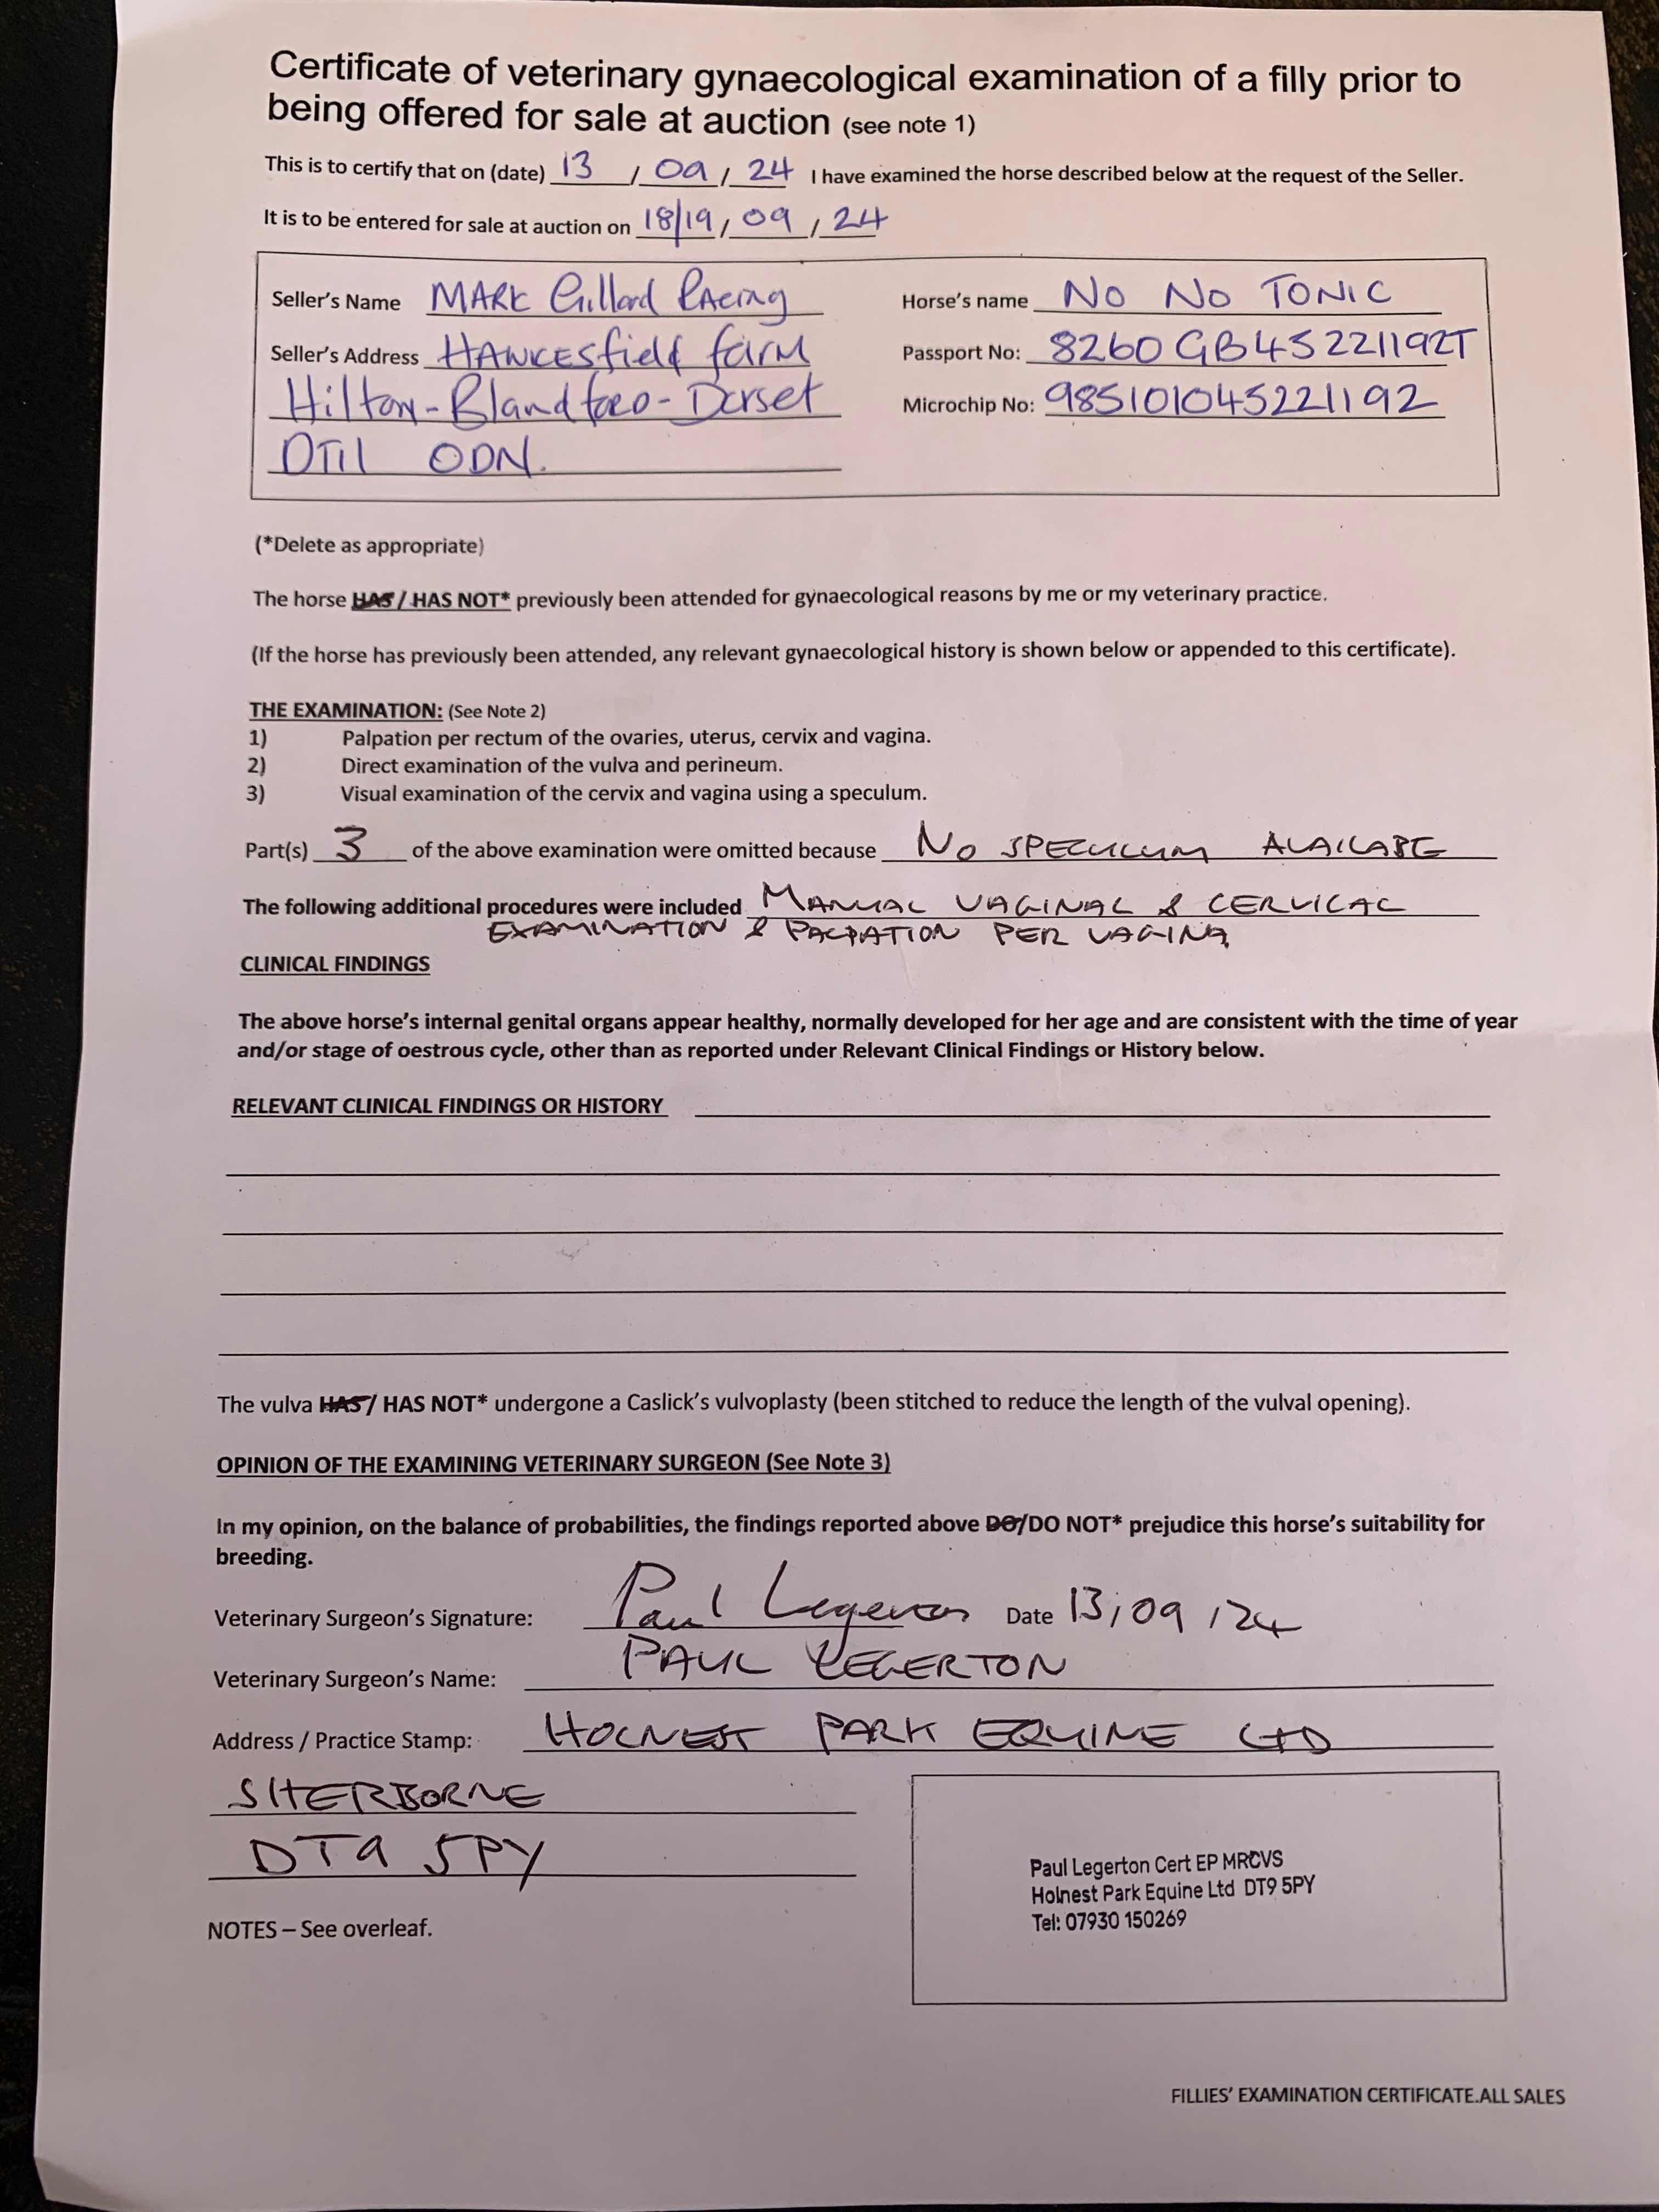 Certificate of veterinary gynaecological examination of a filly prior to
being offered for sale at auction (see note 1)
This is to certify that on (date) 13 / 09 / 24 I have examined the horse described below at the request of the Seller.
It is to be entered for sale at auction on 18/19 / 09 / 24
Seller's Name MARK Gillard RAcing
Horse's name NO NO TONIC
Seller's Address HAWCESfield farm
Passport No: 8260GB45221192T
Hilton - Blandford - Dorset
Microchip No: 985101045221192
DT11 0DN.
(*Delete as appropriate)
The horse HAS / HAS NOT* previously been attended for gynaecological reasons by me or my veterinary practice.
(If the horse has previously been attended, any relevant gynaecological history is shown below or appended to this certificate).
THE EXAMINATION: (See Note 2)
1) Palpation per rectum of the ovaries, uterus, cervix and vagina.
2) Direct examination of the vulva and perineum.
3) Visual examination of the cervix and vagina using a speculum.
Part(s) 3 of the above examination were omitted because NO SPECULUM AVAILABE
The following additional procedures were included MANUAL VAGINAL & CERVICAL
EXAMINATION & PALPATION PER VAGINA
CLINICAL FINDINGS
The above horse's internal genital organs appear healthy, normally developed for her age and are consistent with the time of year
and/or stage of oestrous cycle, other than as reported under Relevant Clinical Findings or History below.
RELEVANT CLINICAL FINDINGS OR HISTORY
The vulva HAS/ HAS NOT* undergone a Caslick's vulvoplasty (been stitched to reduce the length of the vulval opening).
OPINION OF THE EXAMINING VETERINARY SURGEON (See Note 3)
In my opinion, on the balance of probabilities, the findings reported above DO/DO NOT* prejudice this horse's suitability for
breeding.
Veterinary Surgeon's Signature: Paul Legerton Date 13/09/24
Veterinary Surgeon's Name: PAUL LEGERTON
Address / Practice Stamp: HOLNEST PARK EQUINE LTD
SHERBORNE
DT9 5PY
Paul Legerton Cert EP MRCVS
Holnest Park Equine Ltd DT9 5PY
Tel: 07930 150269
NOTES – See overleaf.
FILLIES' EXAMINATION CERTIFICATE.ALL SALES